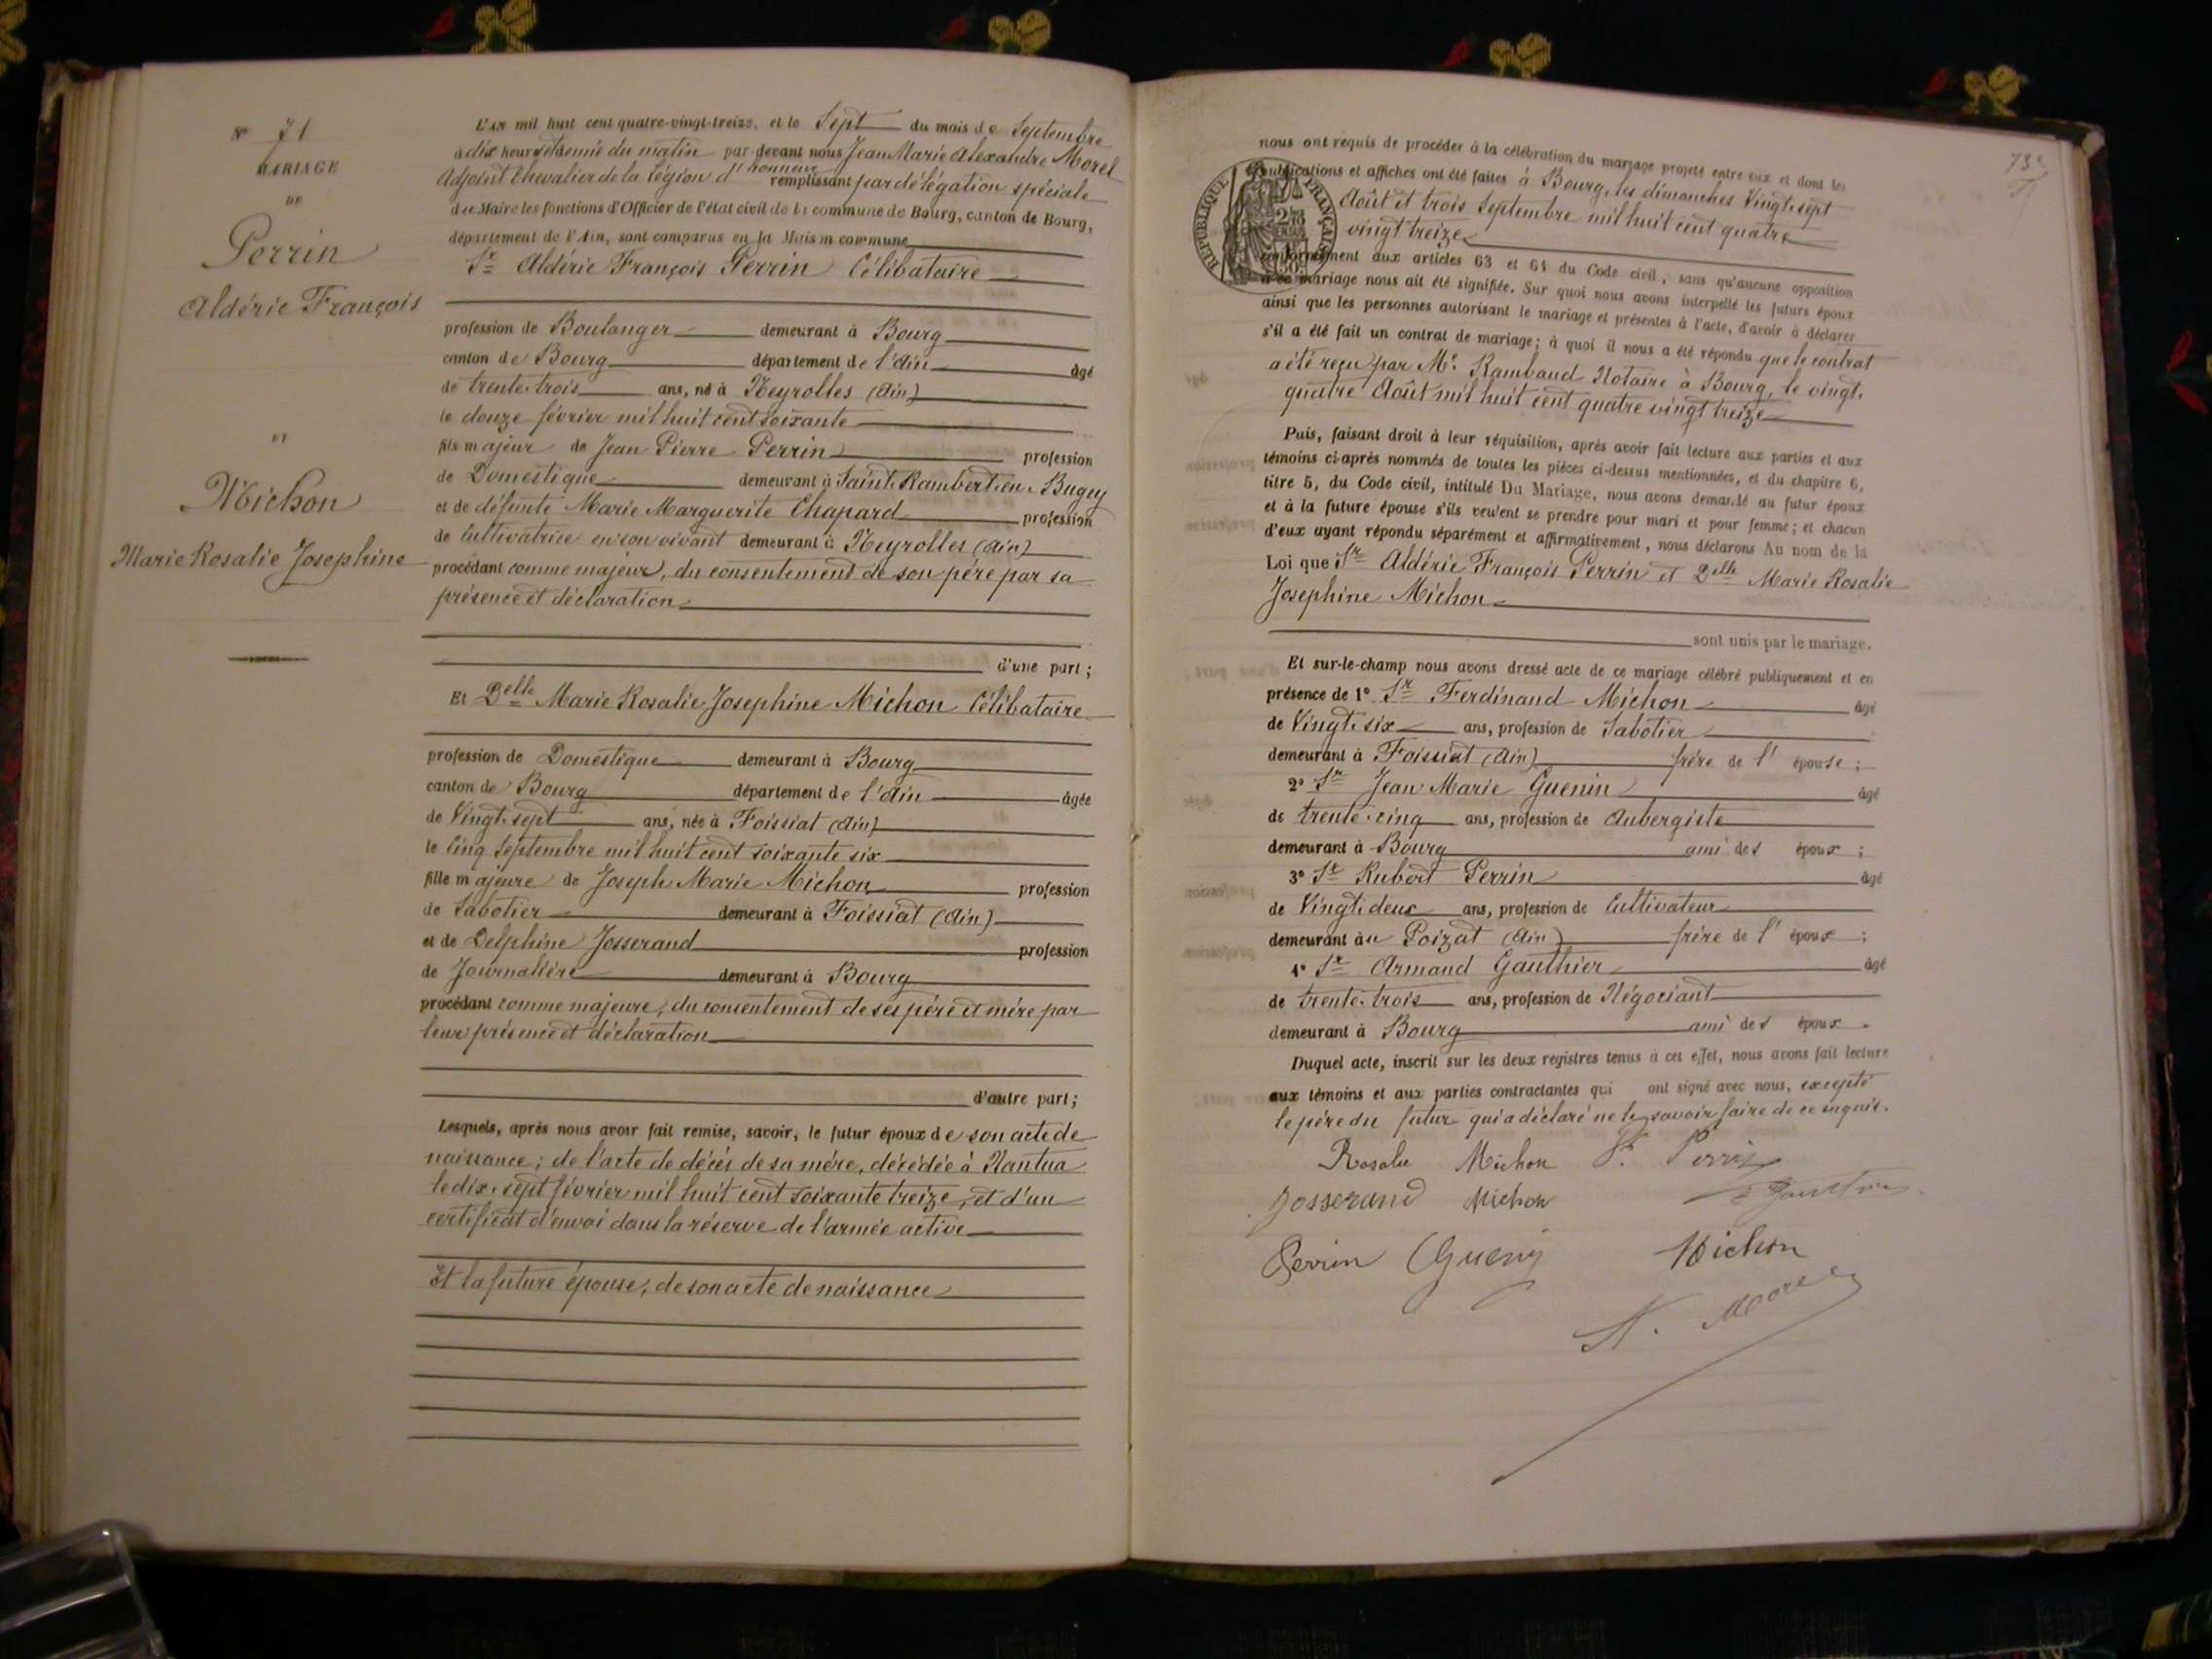 N° 71
MARIAGE
DE
Perrin
Aldéric François
ET
Michon
Marie Rosalie Josephine
L'AN mil huit cent quatre-vingt-treize, et le Sept du mois de Septembre
à dix heures et demie du matin par-devant nous Jean Marie Alexandre Morel
Adjoint Chevalier de la légion d'honneur remplissant par délégation spéciale
du Maire les fonctions d'Officier de l'état civil de la commune de Bourg, canton de Bourg,
département de l'Ain, sont comparus en la Maison commune
Sr Aldéric François Perrin Célibataire
profession de Boulanger demeurant à Bourg
canton de Bourg département de l'Ain âgé
de trente-trois ans, né à Neyrolles (Ain)
le douze février mil huit cent soixante
fils majeur de Jean Pierre Perrin profession
de Domestique demeurant à Saint-Rambert-en-Bugey
et de défunte Marie Marguerite Chapard profession
de Cultivatrice en son vivant demeurant à Neyrolles (Ain)
procédant comme majeur, du consentement de son père par sa
présence et déclaration
d'une part;
Et Delle Marie Rosalie Josephine Michon Célibataire
profession de Domestique demeurant à Bourg
canton de Bourg département de l'Ain âgée
de Vingt-sept ans, née à Foissiat (Ain)
le cinq Septembre mil huit cent soixante six
fille majeure de Joseph Marie Michon profession
de Sabotier demeurant à Foissiat (Ain)
et de Delphine Josserand profession
de Journalière demeurant à Bourg
procédant comme majeure, du consentement de ses père et mère par
leur présence et déclaration
d'autre part;
Lesquels, après nous avoir fait remise, savoir, le futur époux de son acte de
naissance; de l'acte de décès de sa mère, décédée à Nantua
le dix-sept février mil huit cent soixante treize, et d'un
certificat d'envoi dans la réserve de l'armée active
Et la future épouse, de son acte de naissance
nous ont requis de procéder à la célébration du mariage projeté entre eux et dont les
publications et affiches ont été faites à Bourg, les dimanches Vingt-sept
Août et trois Septembre mil huit cent quatre
vingt treize
conformément aux articles 63 et 64 du Code civil, sans qu'aucune opposition
à ce mariage nous ait été signifiée. Sur quoi nous avons interpellé les futurs époux
ainsi que les personnes autorisant le mariage et présentes à l'acte, d'avoir à déclarer
s'il a été fait un contrat de mariage; à quoi il nous a été répondu que le contrat
a été reçu par Me Rambaud Notaire à Bourg, le vingt-
quatre Août mil huit cent quatre vingt treize
Puis, faisant droit à leur réquisition, après avoir fait lecture aux parties et aux
témoins ci-après nommés de toutes les pièces ci-dessus mentionnées, et du chapitre 6,
titre 5, du Code civil, intitulé Du Mariage, nous avons demandé au futur époux
et à la future épouse s'ils veulent se prendre pour mari et pour femme; et chacun
d'eux ayant répondu séparément et affirmativement, nous déclarons Au nom de la
Loi que Sr Aldéric François Perrin et Delle Marie Rosalie
Josephine Michon
sont unis par le mariage.
Et sur-le-champ nous avons dressé acte de ce mariage célébré publiquement et en
présence de 1° Sr Ferdinand Michon âgé
de Vingt-six ans, profession de Sabotier
demeurant à Foissiat (Ain) frère de l'épouse;
2° Sr Jean Marie Guenin âgé
de trente-cinq ans, profession de Aubergiste
demeurant à Bourg ami des époux;
3° Sr Rubert Perrin âgé
de Vingt-deux ans, profession de Cultivateur
demeurant au Poizat (Ain) frère de l'époux;
4° Sr Armand Gauthier âgé
de trente-trois ans, profession de Négociant
demeurant à Bourg ami des époux.
Duquel acte, inscrit sur les deux registres tenus à cet effet, nous avons fait lecture
aux témoins et aux parties contractantes qui ont signé avec nous, excepté
le père du futur qui a déclaré ne le savoir faire de ce enquis.
Rosalie Michon F. Perrin
Josserand Michon
Perrin Guenin Michon
A. Morel
RÉPUBLIQUE FRANÇAISE